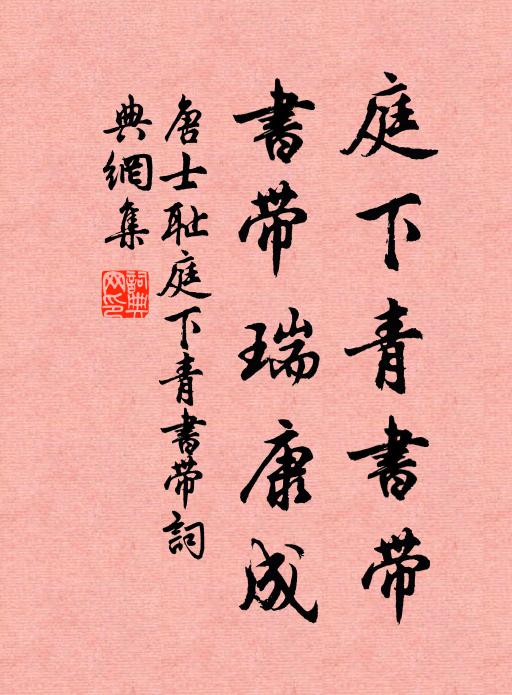 庭下青書帶
書帶瑞康成
唐士耻庭下青書帶詞
典網集
詞典
网印